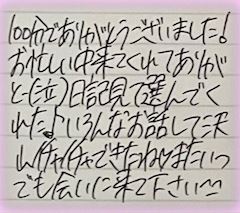 100分でありがとうございました!
お忙しい中来てくれてありが
と(泣)日記見て選んでく
れた♪いろんなお話して沢
山イチャイチャできたね♥またいつ
でも会いに来て下さい〰